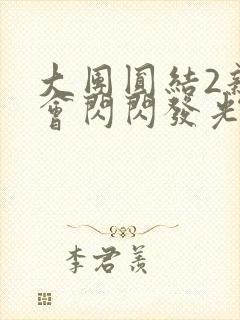 大團圓結2
會閃閃發光
李君羨